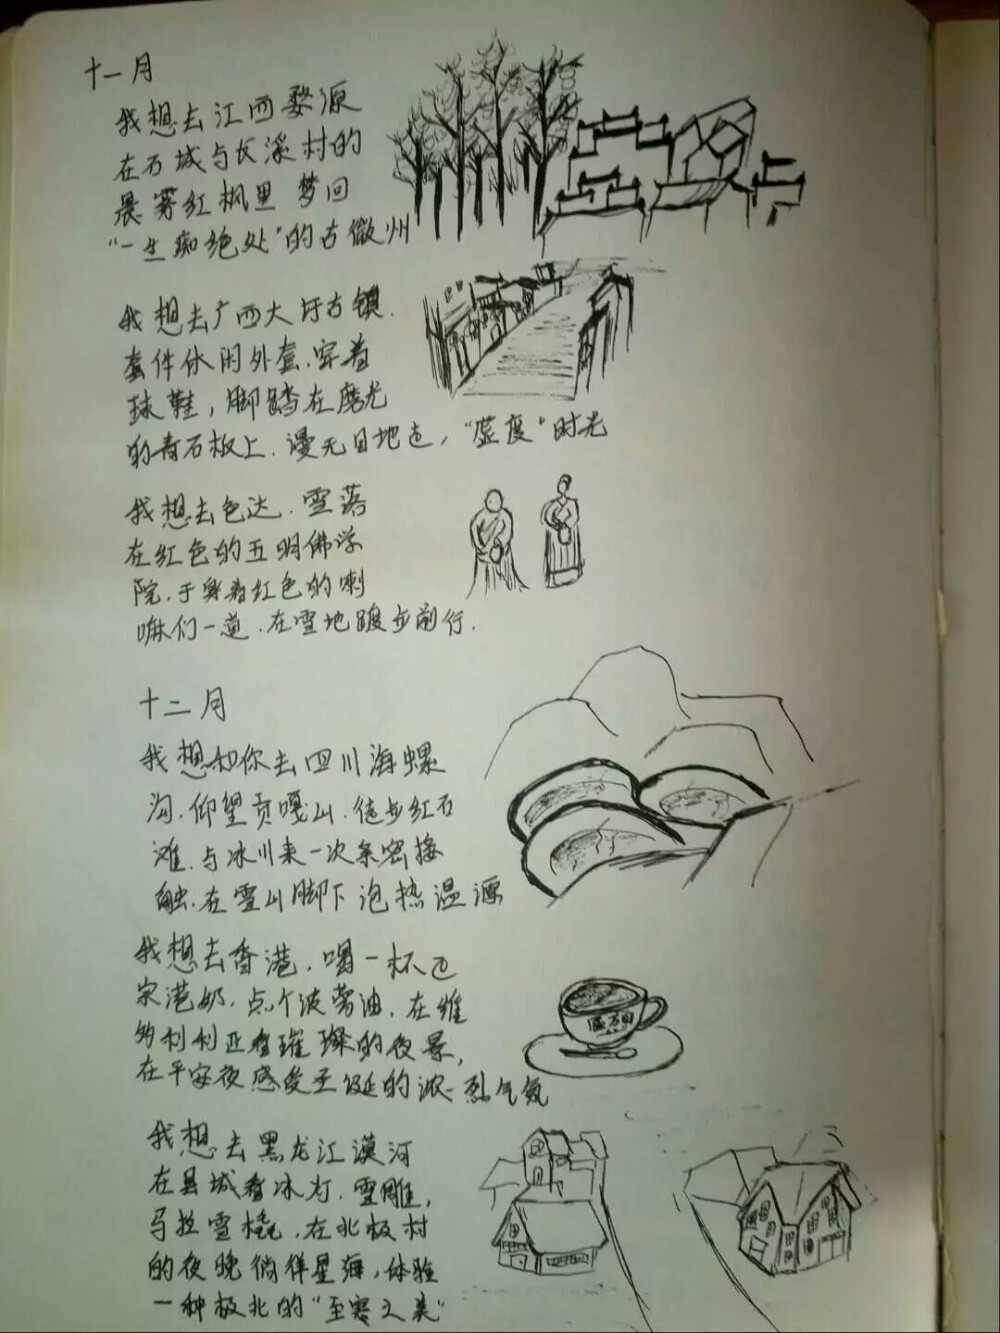 十一月
我想去江西婺源
在石城与长溪村的
晨雾红枫里 梦回
“一生痴绝处”的古徽州
我想去广西大圩古镇.
套件休闲外套.穿着
球鞋，脚踏在磨光
的青石板上.漫无目地走，“虚度”时光
我想去色达.雪落
在红色的五明佛学
院.于身着红色的喇
嘛们一道.在雪地踱步前行.
十二月
我想和你去四川海螺
沟.仰望贡嘎山.徒步红石
滩.与冰川来一次亲密接
触.在雪山脚下泡热温源
我想去香港.喝一杯
家港奶.点个波萝油.在维
多利利亚看璀璨的夜景，
在平安夜感受圣诞的浓烈气氛
我想去黑龙江漠河
在县城看冰灯.雪雕，
马拉雪橇.在北极村
的夜晚徜徉星海，体验
一种极北的“至寒之美”